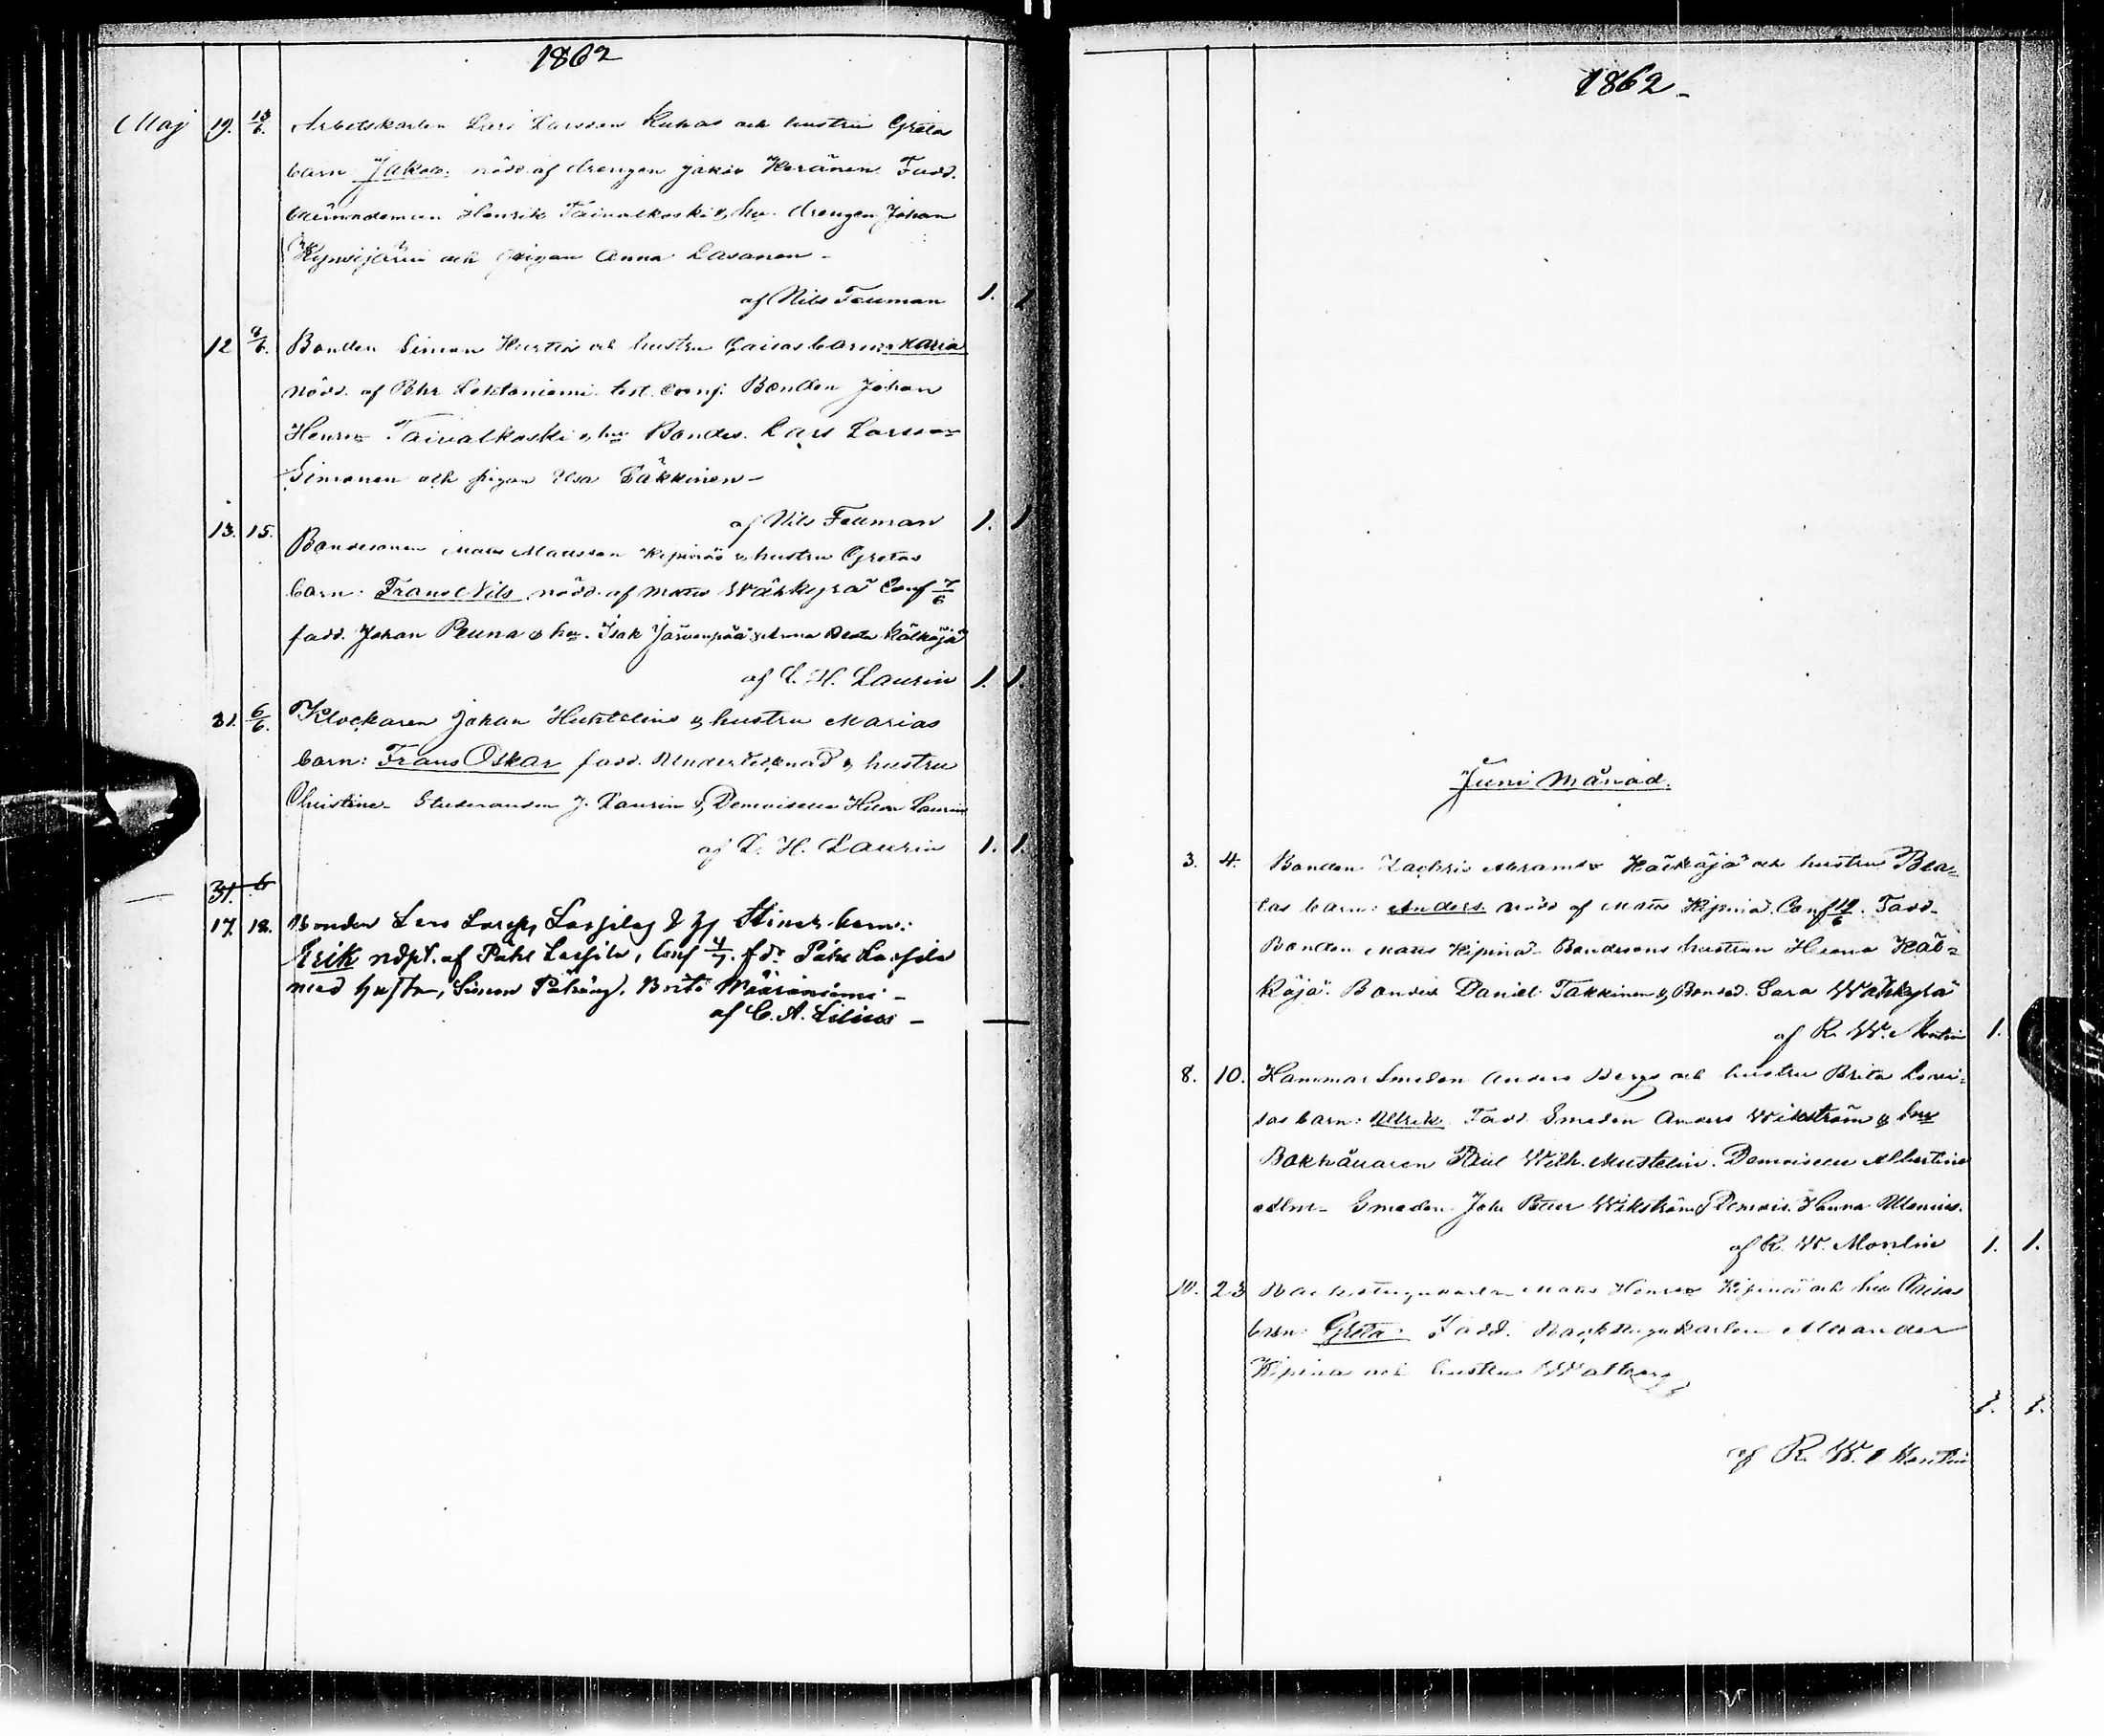 1862
Maj 19. 10/6. Arbetskarlen Lars Larsson Kuhas och hustru Gretas
barn Jakob. nöddöpt af drengen Jakob Keränen. Fadd.
Henrik Taivalkoski & hu. drengen Johan
Kynsijärvi och pigan Anna Lasanen -
af Nils Fellman 1. 1
12 9/6. Bonden Simon Hurtta och hustru Caisas barn Maria
nödd. af Pehr Lehtoniemi Conf. Bonden Johan
Henrs. Taivalkoski & hu Bondes. Lars Larsson
Simonen och pigan Elsa Säkkinen -
af Nils Fellman 1. 1
13. 15. Bondesonen Matts Mattsson Kipinäs & hustru Gretas
barn: Frans Nils nödd. af Matts Wähkyrä Conf 7/6
fadd. Johan Peuna & hu. Isak Järvenpää & Anna Beata Kälkäjä
af L. H. Laurin 1. 1.
31. 6/6. Klockaren Johan Huhtelins & hustru Marias
barn: Frans Oskar fadd. Undertecknad & hustru
Christine. Studeranden J. Laurin & Demoiselle Hilda Laurin
af L. H. Laurin 1. 1.
31. 6
17. 18. Bonden Lars Larss Lassilas & hu Stinas barn:
Erik ndpt. af Pähr Lassila, Conf 4/7. fdr Pähr Lassila
med hustru, Simon Brita Määriniemi -
af C. A. Lilius -
1862 -
Juni Månad.
3. 4. Bonden Zachris Abramss Kälkäjä och hustru Bea=
tas barn: Anders. nödd af Matts Kipinä. Conf 19/6. Fadd.
Bonden Matts Kipinä. Bondesons hustrun Helena Käl=
käjä. Bondes Daniel Takkinen & Bonded. Sara Wähkyrä
af R. W. Montin 1.
8. 10. Hammar Smeden Anders Bergs och hustru Brita Lovi=
sas barn: Ullrik. Fadd. Smeden Anders Wikström & hu
Bokhållaren Paul Wilh. Mustelin. Demoiselle Albertine
Smeden Joh. Petter Wikström & Demois. Hanna
af R. W. Montin 1. 1.
10. 23 Backstugukarlen Matts Henrss Kipinä och hu Caisas
barn: Greta. Fadd. Backstugukarlen
Kipinä och hustru Walborg
1. 1.
af R. W. Montin